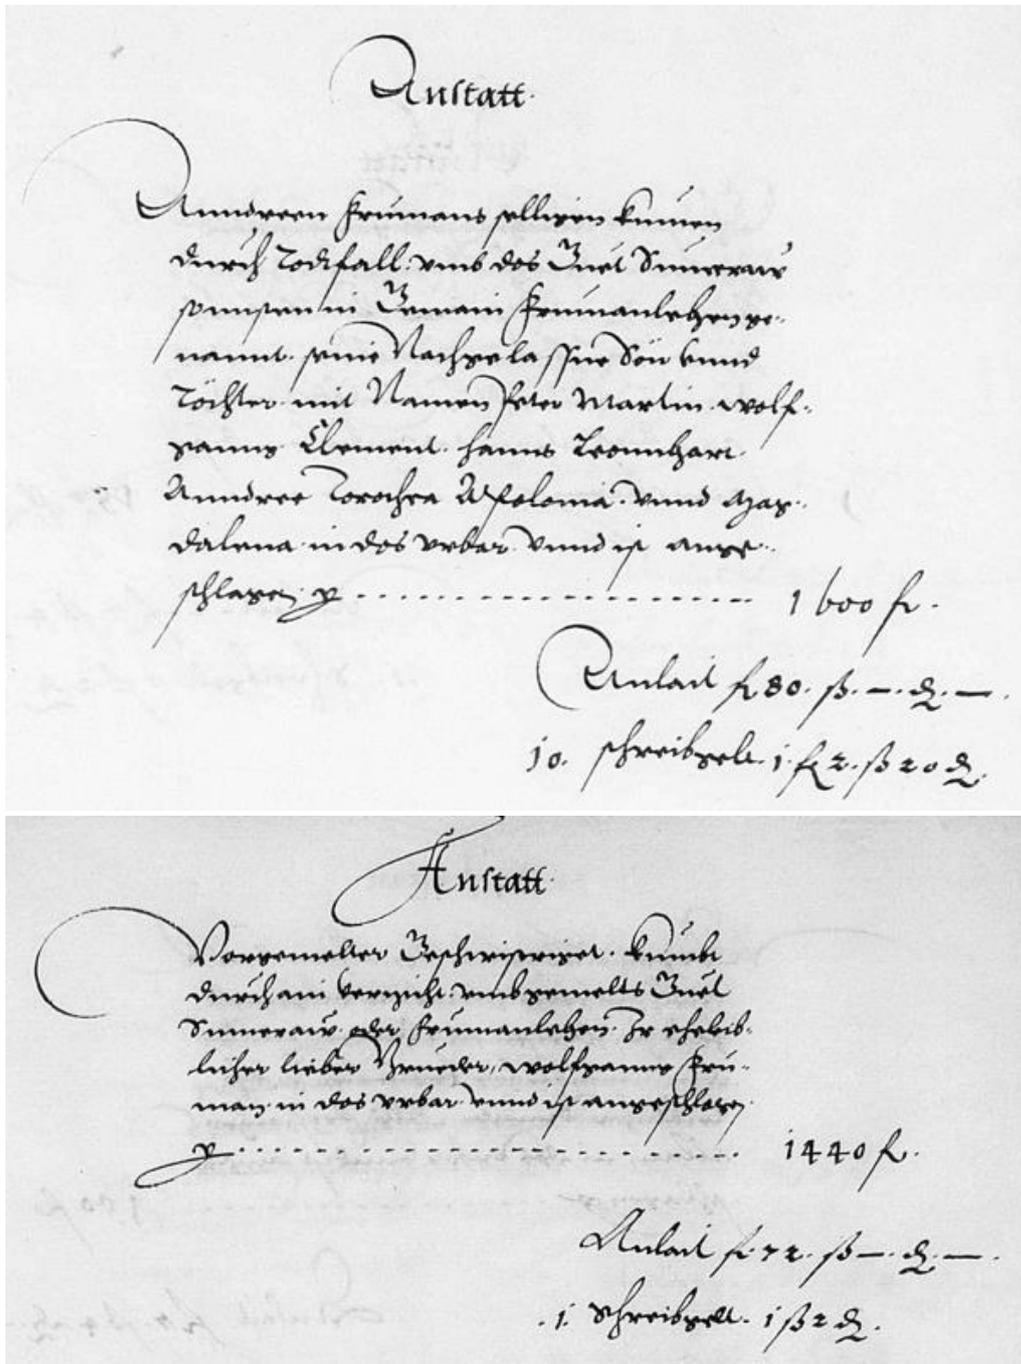 Anstatt.
Anndreen Frumans selligen kumen
durch Todtfall. vmb das Guet Sumeraw
sonnsten in Gemain Frumanlehen ge-
nannt. seine Nachgelassne Sön vnnd
Töchter mit Namen Peter Martin. wolf-
ganng Clement. hanns Leonnhart.
Anndree Dorothea Appolonia. vnnd Mag-
dalena in das vrbar. vnnd ist ange-
schlagen p 1600 fl.
Anlait fl 80. ß. —. d. —.
10. schreibgelt. 1. fl 2. ß 20 d.
Anstatt.
Vorgemelter Geschwistriget. kumbt
durch ain verzicht. vmb gemelts Guet
Sumeraw oder Frumanlehen. Ir eheleib-
licher lieber Brueder, wolfganng Fru-
man in das vrbar vnnd ist angeschlagen
p 1440 fl.
Anlait fl. 72. ß —. d. —.
.1. schreibgelt. 1 ß 2 d.